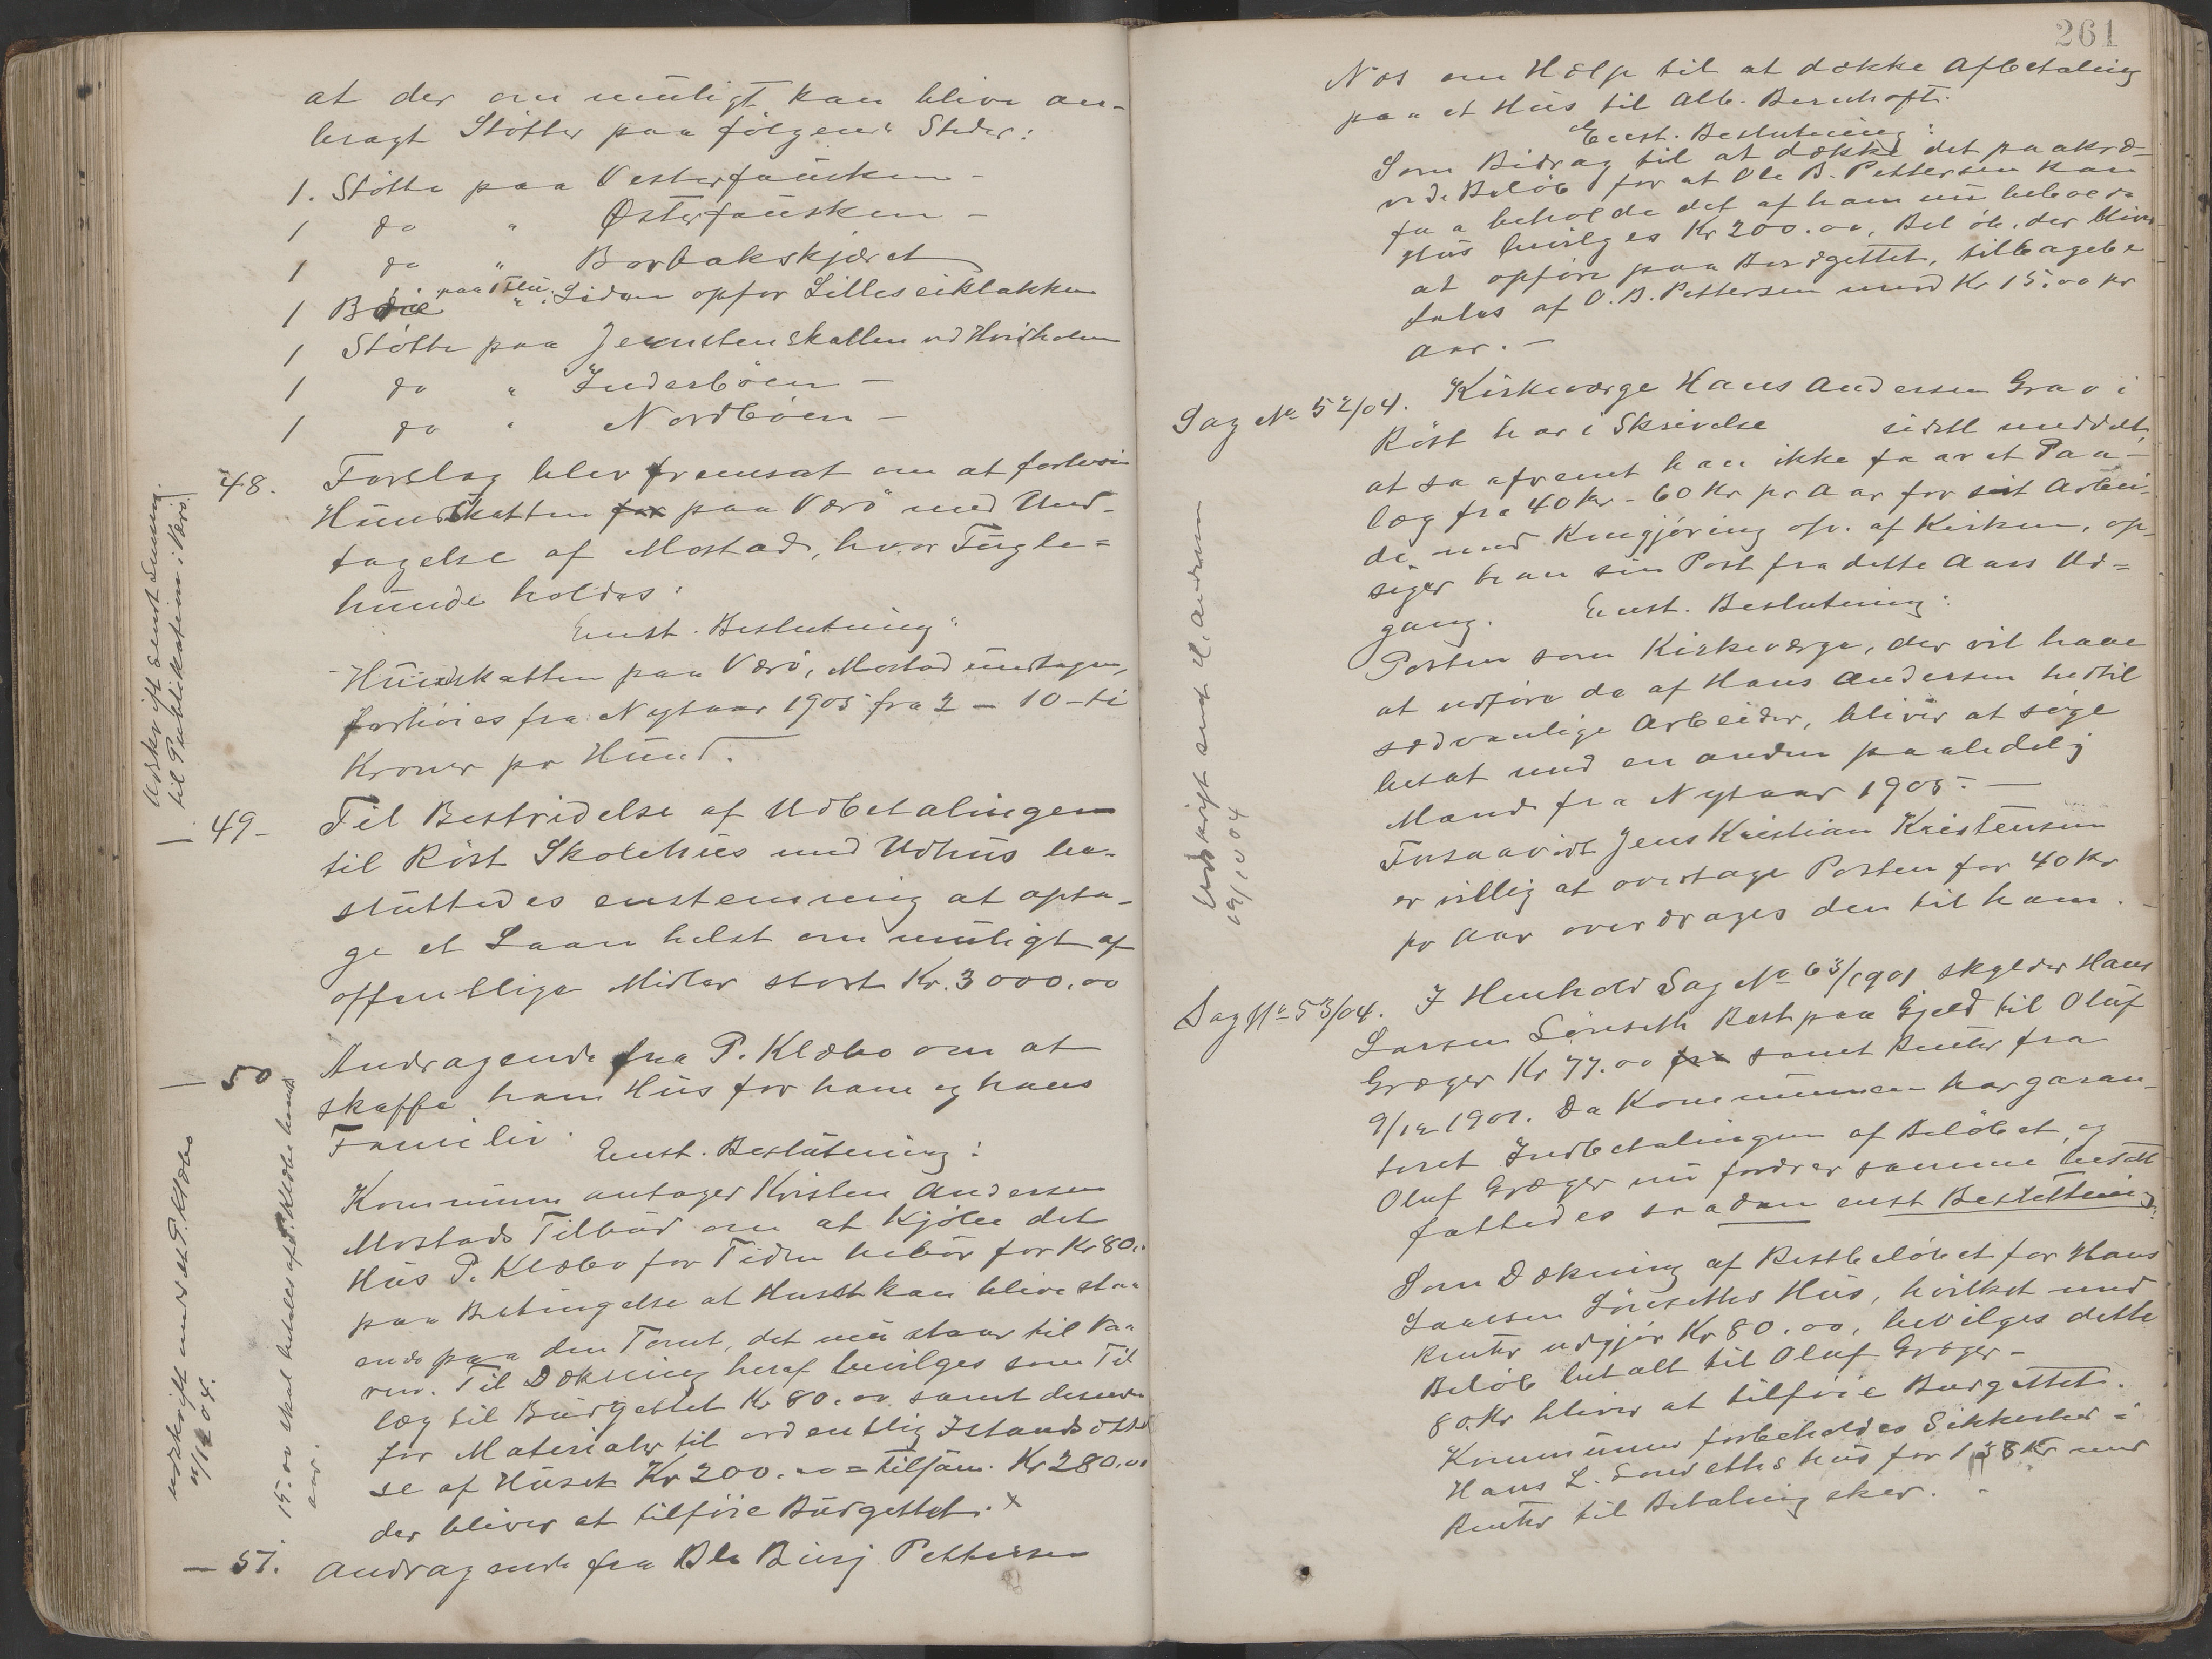 at der om muligt kan blive an-
bragt Støtter paa følgende Steder:
1. Støtte paa Vesterfausken -
1 do " Østerfausken -
1 do " Borbakskjæret
1 Bøie paa Flu. " Siden opfor Lilleseiklakken
1 Støtte paa Jernstenskallen ved Hvidholm
1 do " Inderbøen -
1 do " Nordbøen -
48. Forslag blev fremsat om at forhøie
Hundeskatten for paa Værø med Und-
tagelse af Mostad, hvor Fugle=
hunde holdes:
Enst. Beslutning:
Hundskatten paa Værø, Mostad undtagen,
forhøies fra Nytaar 1905 fra 2 - 10 - ti
Kroner pr Hund.
Udskrift sendt Lensm.
til Publikation i Værø
49- Til Bestridelse af Udbetalingen
til Røst Skolehus med Udhus be-
sluttedes enstemmig at opta-
ge et Laan helst om muligt af
offentlige Midler stort Kr. 3000.00
50 Andragende fra P. Klæbo om at
skaffe ham Hus for ham og hans
Familie.
Enst. Beslutning:
Kommunen antager Kristen Andersen
Mostads Tilbud om at kjøbe det
Hus P. Klæbo for Tiden bebor for Kr 80.
paa Betingelse at Huset kan blive sta-
ende paa den Tomt, det nu staar til Vaa
ren. Til Dækning heraf bevilges som Til
læg til Burgettet Kr 80.00 samt desuden
for Materialer til ordentlig Istandsættel
se af Huset Kr 200.00 = tilsam. Kr 280.00
der bliver at tilføie Burgettet. x
udskrift sendt P. Klæbo
15.00 skal betales af P. Klæbo hvert
aar.
- 51. Andragende fra Ole Binj Pettersen
261
Nos om Hælp til at dække Afbetaling
paa et Hus til Alb. Bernhoft.
Enst. Beslutning:
Som Bidrag til at dække det paakræ-
vede Beløb for at Ole B. Pettersen kan
faa beholde det af ham nu beboede
Hus bevilges Kr 200.00, Beløb, der bliver
at opføre paa Burdgettet, tilbagebe
tales af O. B. Pettersen med Kr 15.00 pr
Aar. -
Sag No 52/04. Kirkeværge Hans Andersen Grav i
Røst har i Skrivelse sidstl meddelt,
at saafremt han ikke faar et Paa-
læg fra 40 Kr - 60 Kr pr Aar for sit Arbei-
de med Rengjøring osv. af Kirken, op-
siger han sin Post fra dette Aars Ud=
gang. Enst. Beslutning:
Posten som Kirkeværge, der vil have
at udføre de af Hans Andersen hedtil
sædvanlige Arbeider, bliver at søge
besat med en anden paalidelig
Mand fra Nytaar 1905. -
Forsaavidt Jens Kristian Kristensen
er villig at overtage Posten for 40 Kr
pr Aar overdrages den til ham. -
Udskrift sendt H. Andersen
Sag No 53/04. I Henhold Sag No 63/1901 skylder Hans
Larsen Sørseth Rest paa Gjeld til Oluf
Græger Kr 77.00 fra samt Renter fra
9/12 1901. Da Kommunen har garan-
teret Indbetalingen af Beløbet, og
Oluf Græger nu fordrer samme betalt
fattedes saadan enst Beslutning:
Som Dækning af Restbeløbet for Hans
Larsen Sørseths Hus, hvilket med
Renter udgjør Kr 80.00, bevilges dette
Beløb betalt til Oluf Græger -
80 Kr bliver at tilføie Burgettet.
Kommunen forbeholdes Sikkerhed i
Hans L. Sørseths hus for 138 Kr med
Renter til Betaling sker.